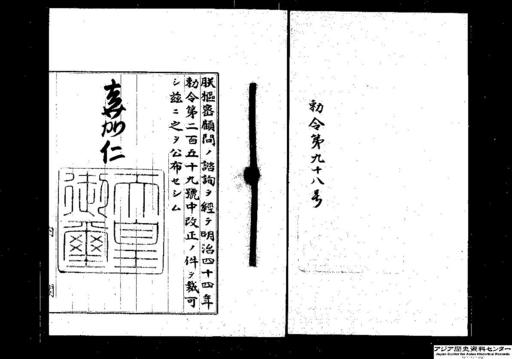 勅令第九十八号
朕樞密顧問ノ諮詢ヲ經テ明治四十四年
勅令第二百五十九號中改正ノ件ヲ裁可
シ茲ニ之ヲ公布セシム
嘉仁
天皇
御璽
内閣
アジア歴史資料センター
Japan Center for Asian Historical Records